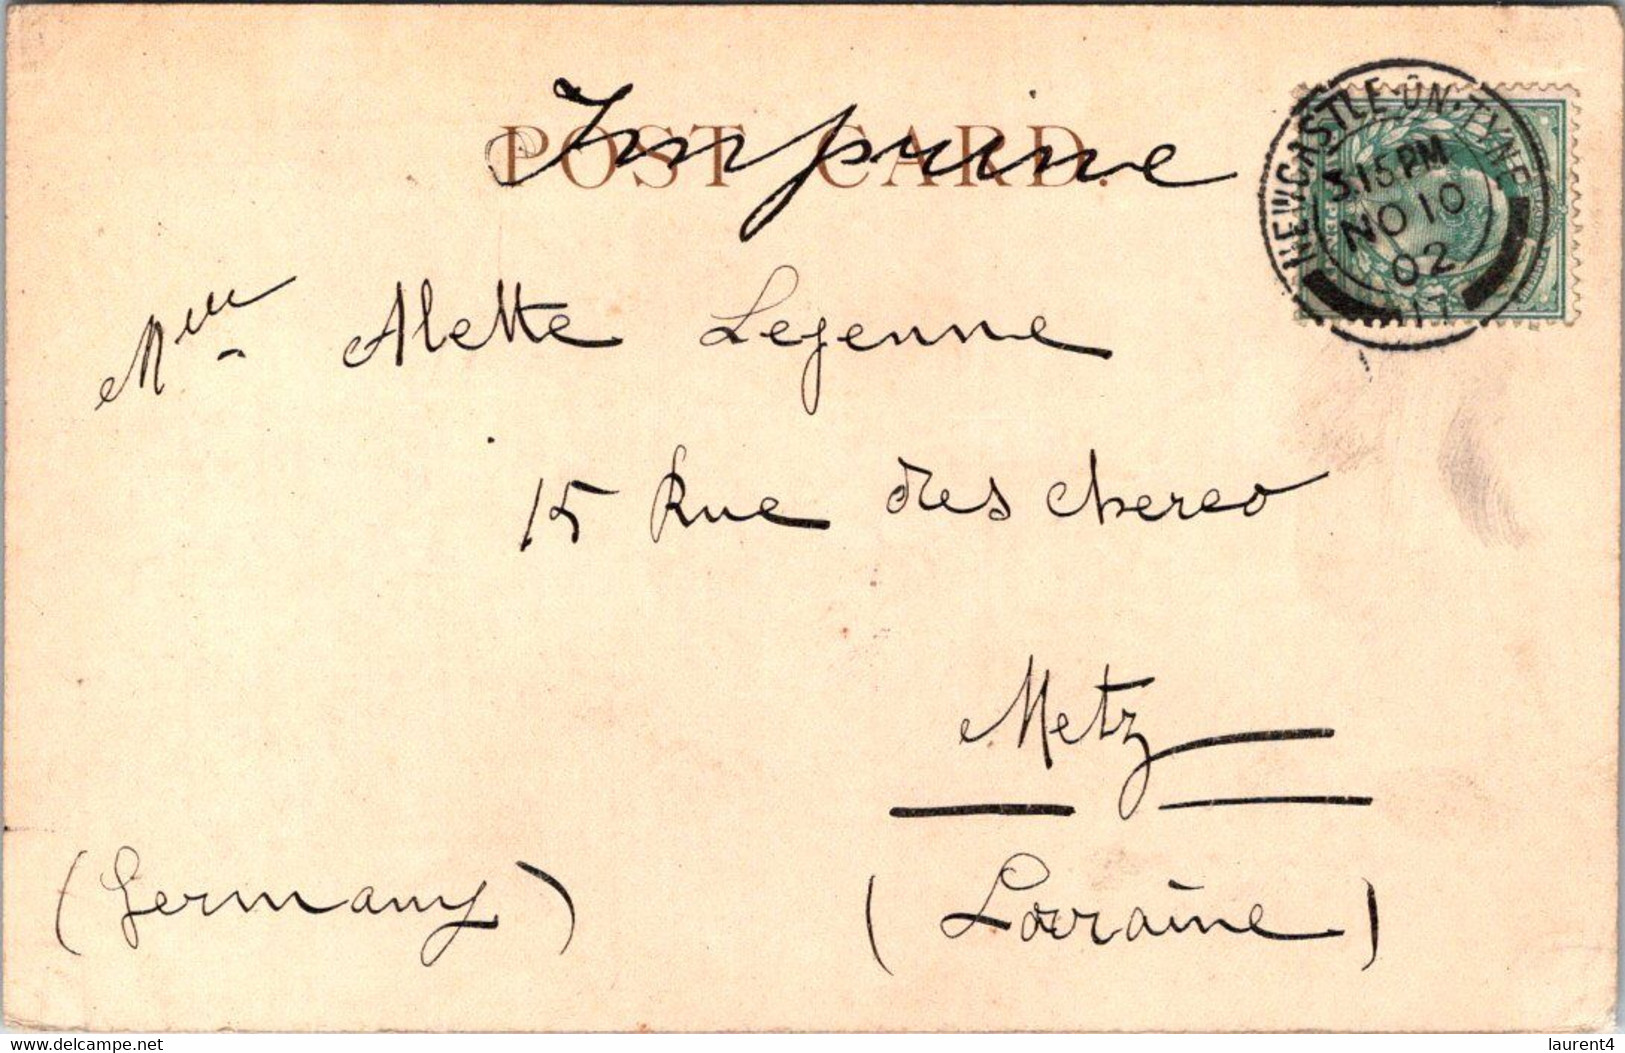 POST CARD.
Imprime
NEWCASTLE·ON·TYNE
3.15 PM
NO 10
02
Mlle Alette Lejenne
15 Rue des
Metz
(Germany)
(Lorraine)
www.delcampe.net
laurent4